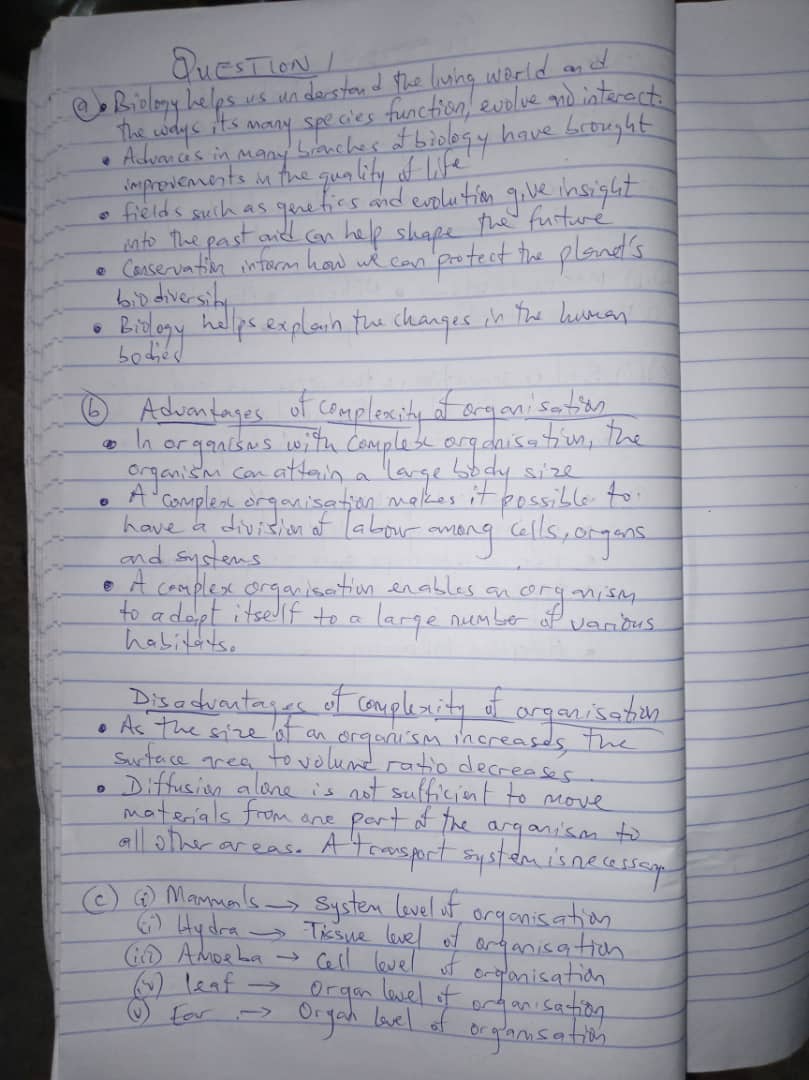 QUESTION 1
(a) • Biology helps us understand the living world and
the ways its many species function, evolve and interact.
• Advances in many branches of biology have brought
improvements in the quality of life
• fields such as genetics and evolution give insight
into the past and can help shape the future
• Conservation inform how we can protect the planet's
biodiversity
• Biology helps explain the changes in the human
bodies
(b) Advantages of complexity of organisation
• In organisms with complex organisation, the
organism can attain a large body size
• A complex organisation makes it possible to
have a division of labour among cells, organs
and systems
• A complex organisation enables an organism
to adapt itself to a large number of various
habitats.
Disadvantages of complexity of organisation
• As the size of an organism increases, the
surface area to volume ratio decreases.
• Diffusion alone is not sufficient to move
materials from one part of the organism to
all other areas. A transport system is necessary
(c) (i) Mammals → System level of organisation
(ii) Hydra → Tissue level of organisation
(iii) Amoeba → Cell level of organisation
(iv) leaf → Organ level of organisation
(v) Ear → Organ level of organisation